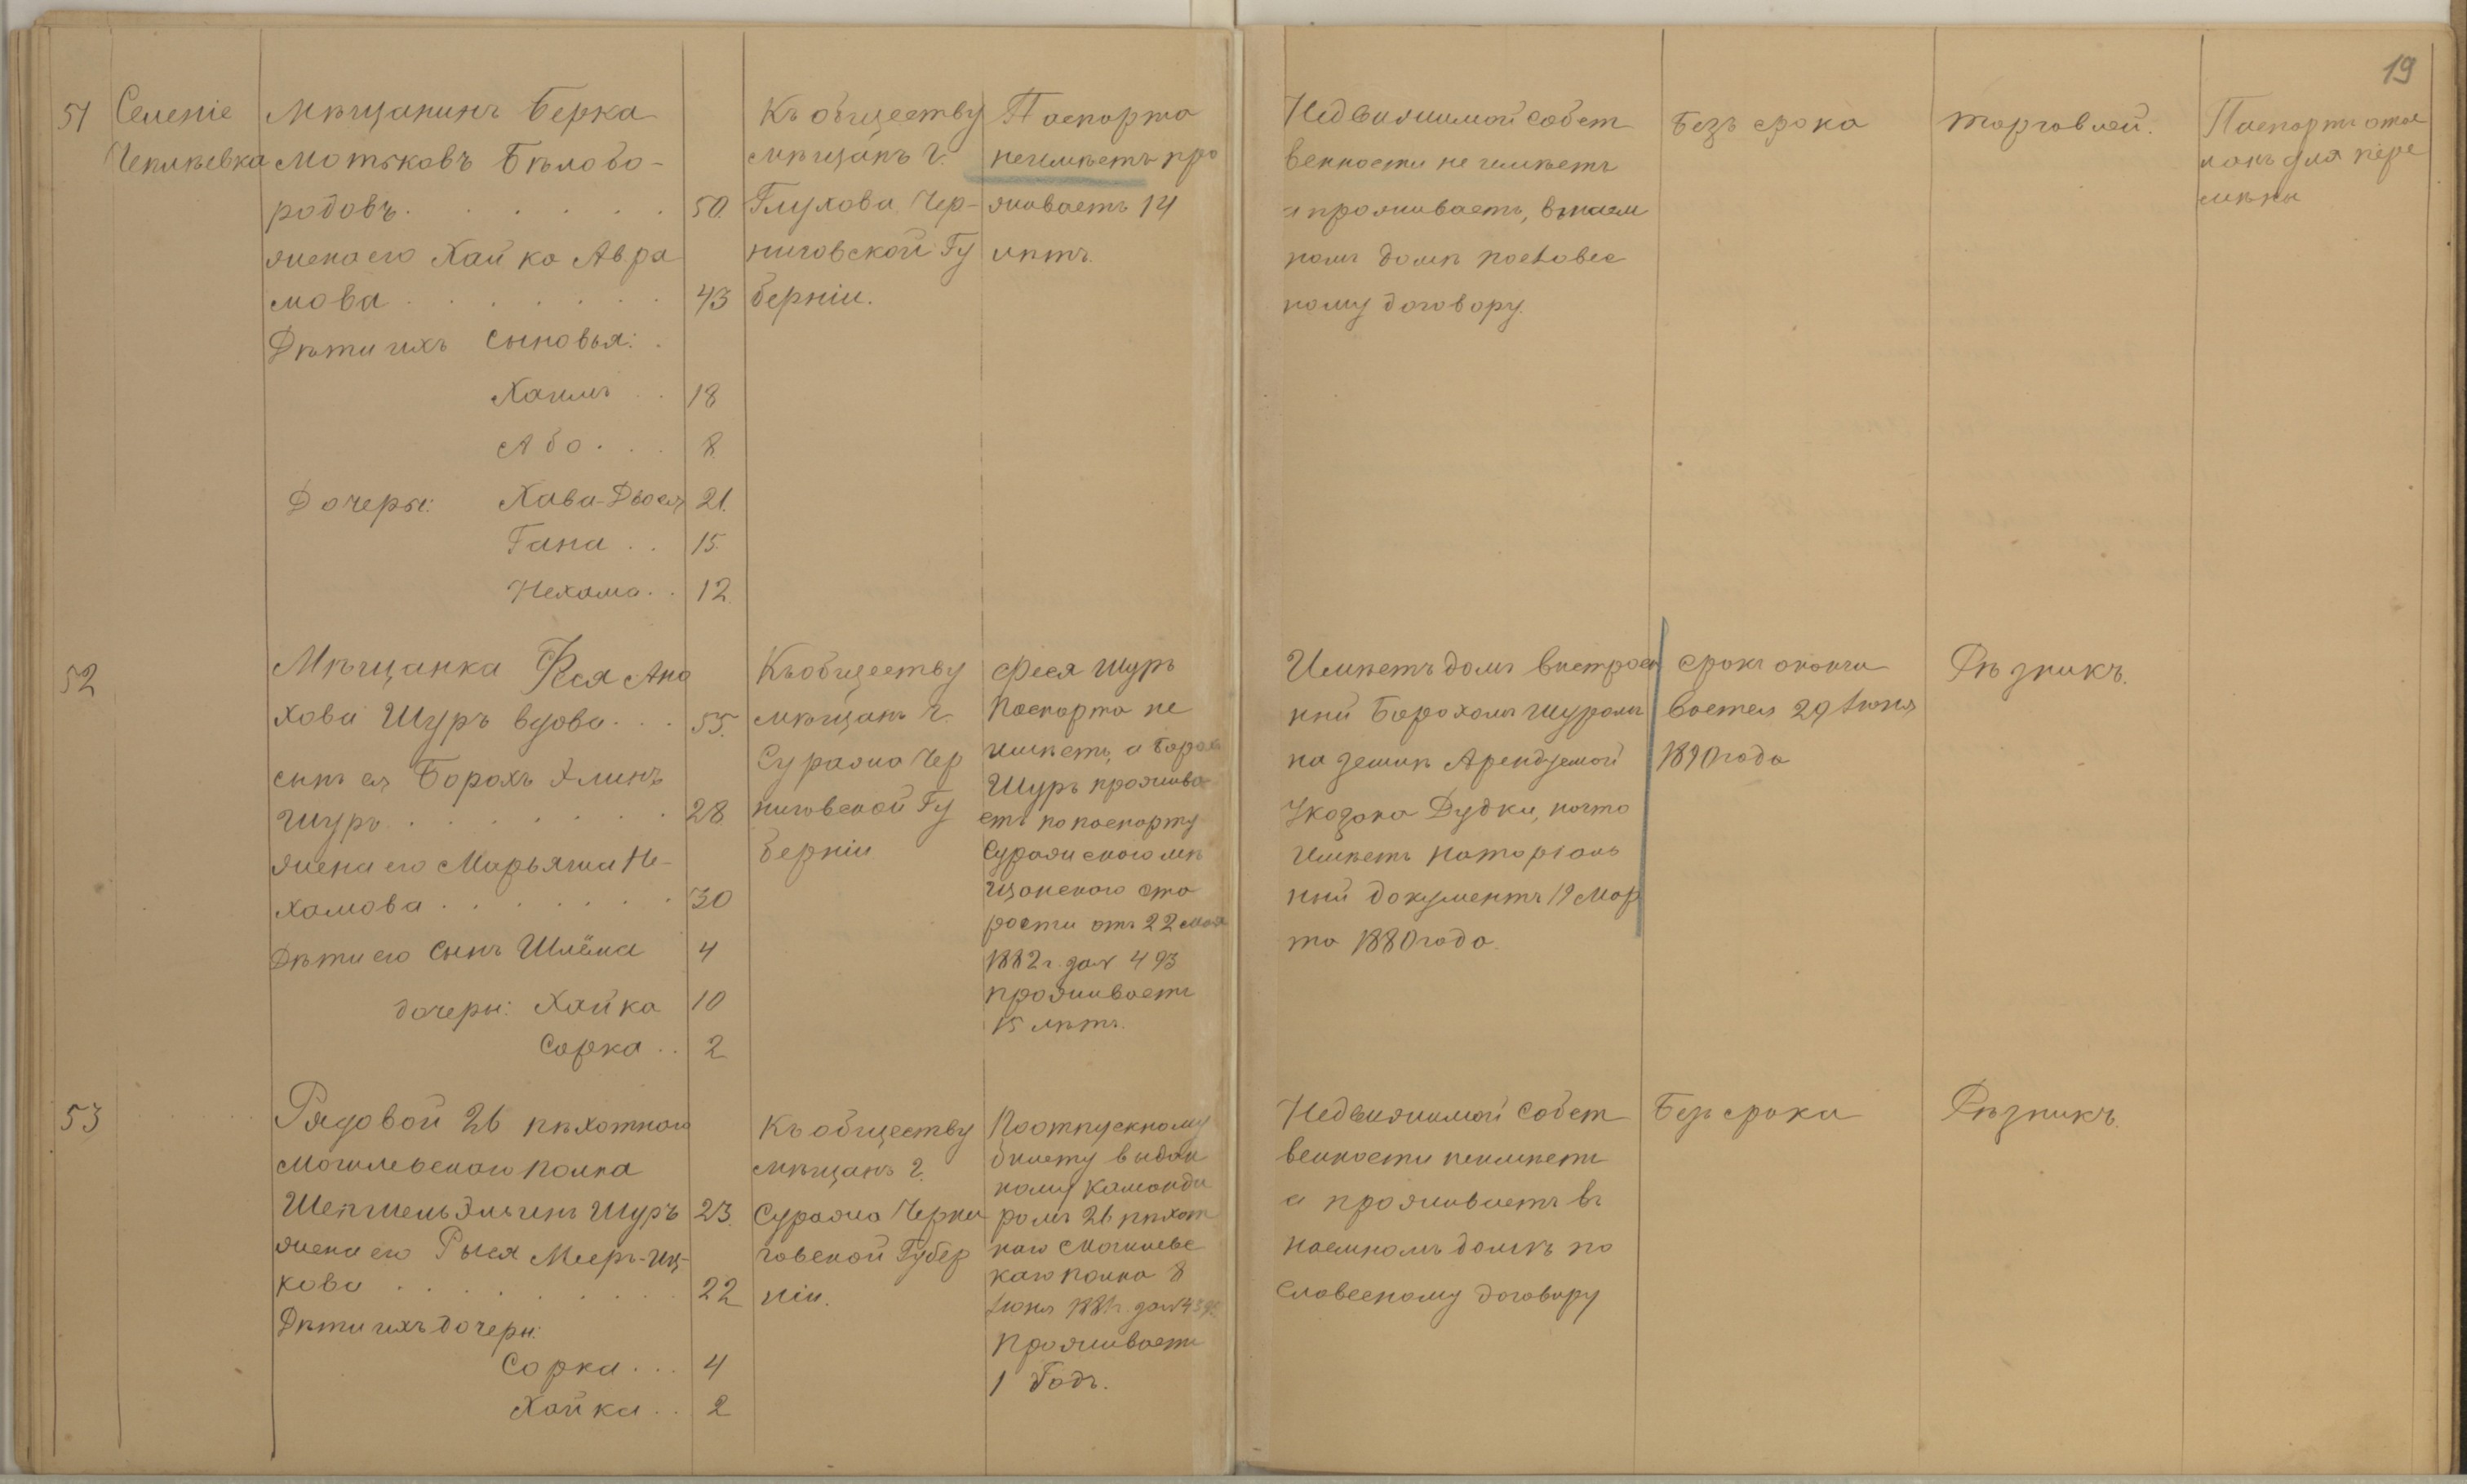 19
51
Селеніе
Чепліевка
Мѣщанинъ Берка
Мотьковъ Бѣлобо-
родовъ . . . . . . 50.
жена его Хайка Авра
мова . . . . . . . 43
Дѣти ихъ Сыновья: .
Хаимъ . . 18
Або . . . 8.
Дочеры: Хава-Двося 21.
Гана . . 15.
Нехама . . 12.
Къ обществу
мѣщанъ г.
Глухова Чер-
ниговской Гу
берніи.
Паспорта
неимѣетъ про
живаетъ 14
лѣтъ.
Недвижимой собст
венности не имѣетъ
а проживаетъ, въ наем
номъ домѣ по словес
ному договору.
Безъ срока
торговлей.
Паспортъ отос
ланъ для пере
мѣны
52
Мѣщанка Фея Ано
хова Шуръ вдова . . . 55.
сынъ ея Борохъ Элинъ
Шуръ . . . . . . . 28.
жена его Марьяша Не-
хамова . . . . . . . 30
Дѣти его Сынъ Шлёма 4
дочеры: Хайка 10
Сорка . . 2
Къ обществу
мѣщанъ г.
Суража Чер
ниговской Гу
берніи
Феся Шуръ
Паспорта не
имѣетъ, а Борох
Шуръ прожива
етъ по паспорту
Суражскаго мѣ
щанскаго ста
росты отъ 22 мая
1882 г. за № 493
проживаетъ
15 лѣтъ.
Имѣетъ домъ выстроен
ный Борохомъ Шуромъ
на землѣ Арендуемой
Укозака Дудки, на что
Имѣетъ нотаріаль
ный документъ 19 Мар
та 1880 года.
Срокъ окончи
вается 29 Іюня
1890 года
Рѣзникъ.
53 . . . . . .
Рядовой 26 пѣхотнаго
Могилевскаго полка
Шепшель Эльинъ Шуръ 23.
жена его Рыся Меер-Иц-
кова . . . . . . . . . 22
Дѣти ихъ дочеры:
Сорка . . . 4
Хайка . . 2
Къ обществу
мѣщанъ г.
Суража Черни
говской Губер
ніи.
По отпускному
билету выдан
ному команди
ромъ 26 пѣхот
наго Могилевс
каго полка 8
Іюня 1881 г. за №
Проживаетъ
1 Годъ.
Недвижимой Собст
венности неимѣетъ
а проживаетъ въ
наемномъ домѣ по
Словесному договору
Безъ срока
Рѣзникъ.